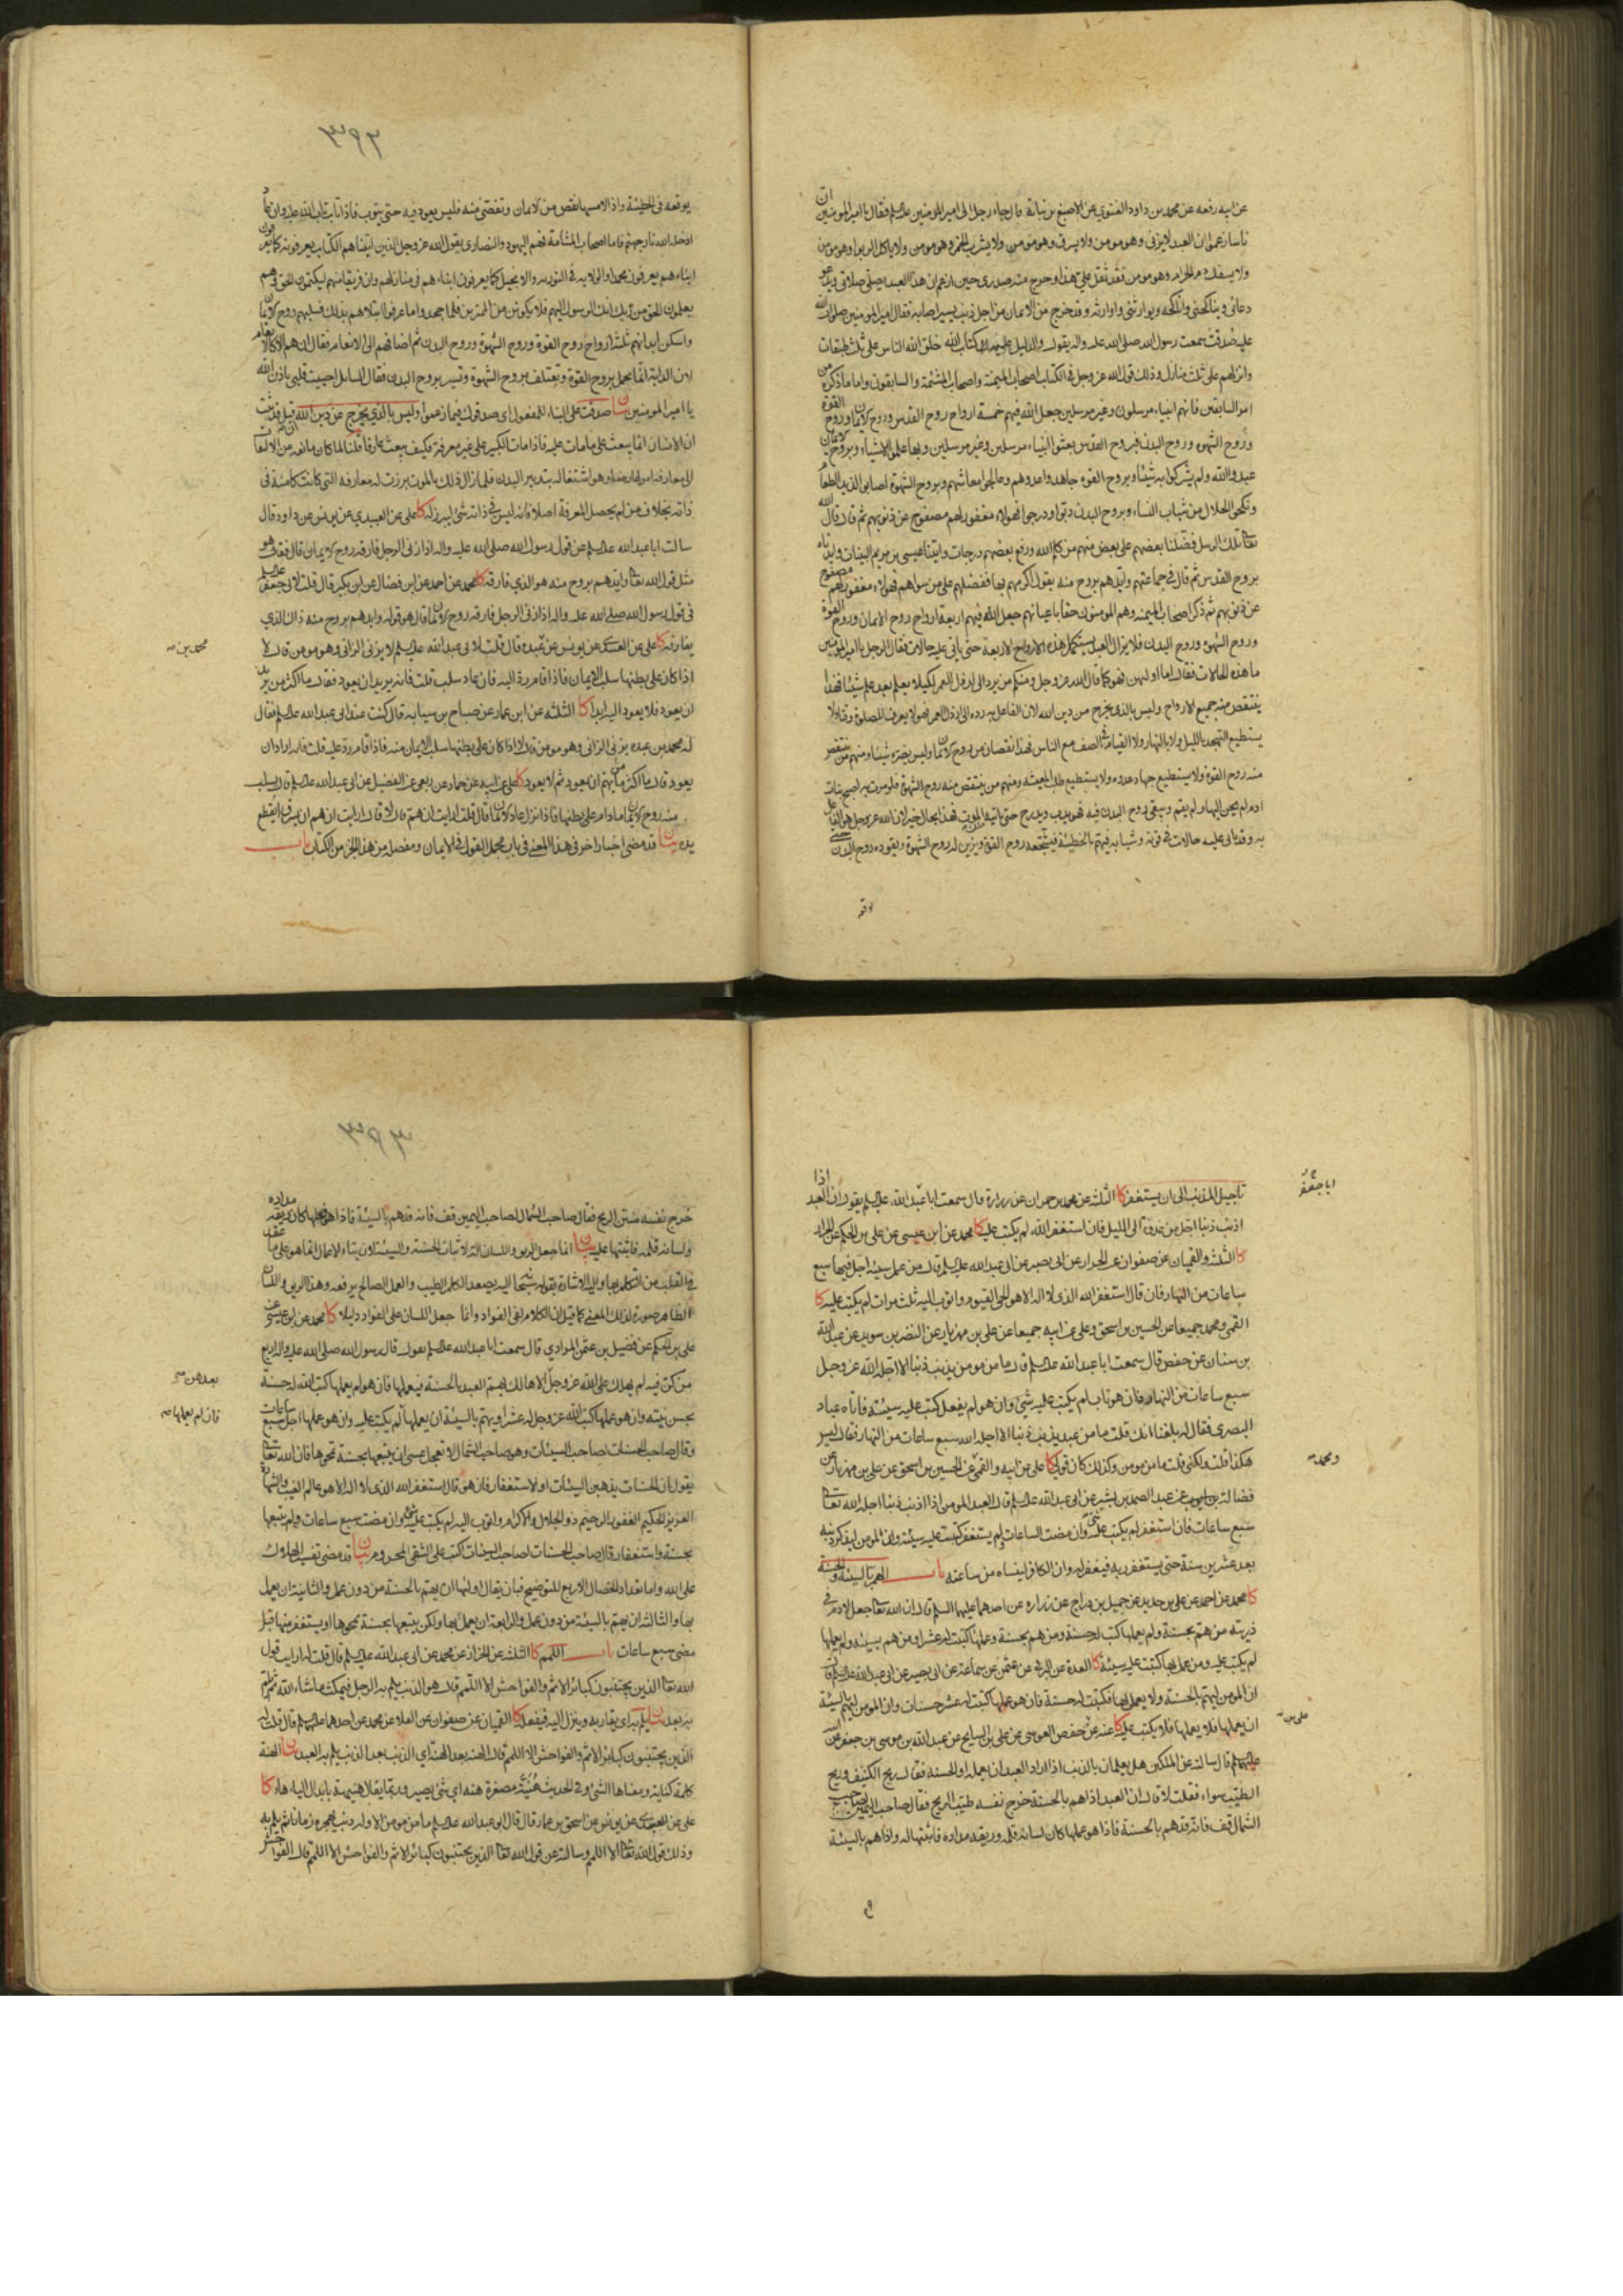 عن ابيه رفعه عن محمد بن داود الغنوي عن الاصبغ بن نباتة قال جاء رجل الى امير المؤمنين عليه السلم فقال يا امير المؤمنين ان
ناسا زعموا ان العبد لا يزنى وهو مومن ولا يسرق وهو مومن ولا يشرب الخمر وهو مومن ولا ياكل الربوا وهو مومن
ولا يسفك دم الحرام وهو مومن فقد ثقل على هذا وحرج منه صدرى حين ازعم ان هذا العبد يصلى صلاتى ويدعو
دعائى ويناكحنى واناكحه ويوارثنى واوارثه وقد خرج من الايمان من اجل ذنب يسير اصابه فقال امير المومنين صلوات الله
عليه صدقت سمعت رسول الله صلى الله عليه واله يقول والدليل عليه كتاب الله خلق الله الناس على ثلث طبقات
وانزلهم على ثلث منازل وذلك قول الله عز وجل فى الكتاب اصحاب الميمنة واصحاب المشئمة والسابقون واما ما ذكره من
امر السابقين فانهم انبياء مرسلون وغير مرسلين جعل الله فيهم خمسة ارواح روح القدس وروح الايمان وروح القوة
وروح الشهوه وروح البدن فبروح القدس بعثوا انبياء مرسلين وغير مرسلين وبها علموا الاشياء وبروح الايمان
عبدوا الله ولم يشركوا به شيئا وبروح القوه جاهدوا عدوهم وعالجوا معاشهم وبروح الشهوة اصابوا لذيذ الطعام
ونكحوا الحلال من شباب النساء وبروح البدن دبوا ودرجوا فهولاء مغفور لهم مصفوح عن ذنوبهم ثم قال قال الله
تعا تلك الرسل فضلنا بعضهم على بعض منهم من كلم الله ورفع بعضهم درجات واتينا عيسى بن مريم البينات وايدناه
بروح القدس ثم قال فى جماعتهم وايدهم بروح منه يقول اكرمهم بها ففضلهم على من سواهم فهولاء مغفور لهم مصفوح
عن ذنوبهم ثم ذكر اصحاب الميمنه وهم المومنون حقا باعيانهم جعل الله فيهم اربعة ارواح روح الايمان وروح القوة
وروح الشهوه وروح البدن فلا يزال العبد يستكمل هذه الارواح الاربعة حتى ياتى عليه حالات فقال الرجل يا امير المومنين
ما هذه الحالات فقال اما اوليهن فهو كما قال الله عز وجل ومنكم من يرد الى ارذل العمر لكيلا يعلم بعد علم شيئا فهذا
ينتقص منه جميع الارواح وليس بالذى يخرج من دين الله لان الفاعل به رده الى ارذل العمر فهو لا يعرف للصلوة وقتا ولا
يستطيع التهجد بالليل ولا بالنهار ولا القيام فى الصف مع الناس فهذا نقصان من روح الايمان وليس يضره شيئا ومنهم من ينتقص
منه روح القوة ولا يستطيع جهاد عدوه ولا يستطيع طلب المعيشه ومنهم من ينتقص منه روح الشهوة فلو مرت به اصبح بنات
ادم لم يحن اليها ولم يقم ويبقى روح البدن فيه فهو يدب ويدرج حتى ياتيه الموت فهذا بحال خير لان الله عز وجل هو الفاعل
به وقد ياتى عليه حالات فى قوته وشبابه فيهم بالخطيئة فيشجعه روح القوة ويزين له روح الشهوة ويقوده روح البدن حتى
توقعه
يوقعه فى الخطيئة واذا لامسها نقص من الايمان وتفصى منه فليس يعود فيه حتى يتوب فاذا تاب تاب الله عليه وان عاد
ادخله الله نار جهنم فاما اصحاب المشامة فهم اليهود والنصارى يقول الله عز وجل الذين اتيناهم الكتاب يعرفونه كما يعرفون
ابناءهم يعرفون محمدا والولايه فى التوريه والانجيل كما يعرفون ابناءهم فى منازلهم وان فريقا منهم ليكتمون الحق وهم
يعلمون الحق من ربك انك الرسول اليهم فلا تكونن من الممترين فلما جحدوا ما عرفوا ابتلاهم بذلك فسلبهم روح الايمان
واسكن ابدانهم ثلثة ارواح روح القوة وروح الشهوة وروح البدن ثم اضافهم الى الانعام فقال ان هم الا كالانعام
لان الدابة انما تحمل بروح القوة وتعتلف بروح الشهوة وتسير بروح البدن فقال السائل احييت قلبى باذن الله
يا امير المومنين بيان صدقت على البناء للمفعول اى صدقوك فيما زعموا وليس بالذى يخرج عن دين الله قيل قد ثبت
ان الانسان انما يبعث على ما مات عليه فاذا مات الكبير على غير معرفة فكيف يبعث عارفا قلنا لما كان مانعه عن الالتفات
الى معارفه امرا عارضا وهو اشتغاله بتدبير البدن فلما زال ذلك بالموت برزت له معارفه التى كانت كامنة فى
ذاته بخلاف من لم يحصل المعرفة اصلا فانه ليس فى ذاته شئ ليبرز له كا على عن العبيدي عن يونس عن داود قال
سالت ابا عبد الله عليه السلم عن قول رسول الله صلى الله عليه واله اذا زنى الرجل فارقه روح الايمان قال فقال هو
مثل قول الله تعا وايدهم بروح منه هو الذي فارقه كا محمد عن احمد عن ابن فضال عن ابن بكير قال قلت لابى جعفر عليه السلم
فى قول رسول الله صلى الله عليه واله اذا زنى الرجل فارقه روح الايمان قال هو قوله وايدهم بروح منه ذاك الذي
يفارقه كا على عن العبيدى عن يونس عن عبده قال قلت لابى عبد الله عليه السلم لا يزنى الزانى وهو مومن قال لا
محمد بن صح
اذا كان على بطنها سلب الايمان فاذا قام رد اليه فان عاد سلب قلت فانه يريد ان يعود فقال ما اكثر من يريد
ان يعود فلا يعود اليه ابدا كا الثلثه عن ابن عمار عن صباح بن سيابه قال كنت عند ابى عبد الله عليه السلم فقال
له محمد بن عبده يزنى الزانى وهو مومن قال لا اذا كان على بطنها سلب الايمان منه فاذا قام رد عليه قلت فانه اراد ان
يعود قال ما اكثر ما يهم ان يعود ثم لا يعود كا على عن ابيه عن حماد عن ربعى عن الفضيل عن ابى عبد الله عليه السلم قال يسلب
منه روح الايمان ما دام على بطنها فاذا نزل عاد الايمان قال قلت ارايت ان هم قال لا قال ارايت ان هم ان يسرق ايقطع
يده بيان قد مضى اخبار اخر فى هذا المعنى فى باب مجمل القول فى الايمان ومفصله من هذا الجزء من الكتاب باب
تاجيل المذنب الى ان يستغفر كا الثلثة عن محمد بن حمران عن زرارة قال سمعت ابا عبد الله عليه السلم يقول ان العبد اذا
ابا جعفر
اذنب ذنبا اجل من غدوة الى الليل فان استغفر الله لم يكتب عليه كا محمد عن ابن عيسى عن على بن الحكم عن الخزاز
كا الثلثه والقميان عن صفوان عن الخزاز عن ابى بصير عن ابى عبد الله عليه السلم قال من عمل سيئة اجل فيها سبع
ساعات من النهار فان قال استغفر الله الذى لا اله الا هو الحى القيوم واتوب اليه ثلث مرات لم يكتب عليه كا
القمى ومحمد جميعا عن الحسين بن اسحق وعلى عن ابيه جميعا عن على بن مهزيار عن النضر بن سويد عن عبد الله
بن سنان عن حفص قال سمعت ابا عبد الله عليه السلم قال ما من مومن يذنب ذنبا الا اجله الله عز وجل
سبع ساعات من النهار فان هو تاب لم يكتب عليه شئ وان هو لم يفعل كتب عليه سيئة فاتاه عباد
البصرى فقال له بلغنا انك قلت ما من عبد يذنب ذنبا الا اجله الله سبع ساعات من النهار فقال ليس
هكذا قلت ولكنى قلت ما من مومن وكذلك كان قولى كا على عن ابيه والقمى عن الحسين بن اسحق عن على بن مهزيار عن
ومحمد صح
فضالة بن ايوب عن عبد الصمد بن بشير عن ابى عبد الله عليه السلم قال العبد المومن اذا اذنب ذنبا اجله الله تعالى
سبع ساعات فان استغفر لم يكتب عليه شئ وان مضت الساعات ولم يستغفر كتبت عليه سيئة وان المومن ليذكر ذنبه
بعد عشرين سنة حتى يستغفر ربه فيغفر له وان الكافر لينساه من ساعته باب الهم بالسيئة والحسنة
كا محمد عن احمد عن على بن حديد عن جميل بن دراج عن زراره عن احدهما عليهما السلم قال ان الله تعا جعل لادم فى
ذريته من هم بحسنة ولم يعملها كتب له حسنة ومن هم بحسنة وعملها كتبت له عشرا ومن هم بسيئة ولم يعملها
لم يكتب عليه ومن عمل بها كتبت عليه سيئة كا العدة عن البرقى عن عثمن عن سماعة عن ابى بصير عن ابى عبد الله عليه السلم قال
ان المومن ليهم بالحسنة ولا يعمل بها فيكتب له حسنة فان هو عملها كتبت له عشر حسنات وان المومن ليهم بالسيئة
ان يعملها فلا يعملها فلا يكتب عليه كا عنه عن حفص العوسى عن على بن السايح عن عبد الله بن موسى بن جعفر عن ابيه
على بن صح
عليهما السلم قال سالته عن الملكين هل يعلمان بالذنب اذا اراد العبد ان يعمله او الحسنه فقال ريح الكنيف وريح
الطيب سواء فقلت لا قال ان العبد اذا هم بالحسنة خرج نفسه طيب الريح فقال صاحب اليمين لصاحب
الشمال قف فانه قد هم بالحسنة فاذا هو عملها كان لسانه قلمه وريقه مداده فاثبتها له واذا هم بالسيئة
خرج نفسه منتن الريح فقال صاحب الشمال لصاحب اليمين قف فانه قد هم بالسيئة فاذا هو فعلها كان ريقه مداده
ولسانه قلمه فاثبتها عليه بيان انما جعل الريق واللسان الة لاثبات الحسنة والسيئة لان بناء الاعمال انما هو على ما عقد
فى القلب من التكلم بها واليه الاشارة بقوله سبحانه اليه يصعد الكلم الطيب والعمل الصالح يرفعه وهذا الريق واللسان
الظاهر صورة لذلك المعنى كما قيل ان الكلام لفى الفواد وانما جعل اللسان على الفواد دليلا كا محمد عن ابن عيسى عن
على بن الحكم عن فضيل بن عثمن المرادي قال سمعت ابا عبد الله عليه السلم يقول قال رسول الله صلى الله عليه واله اربع
من كن فيه لم يهلك على الله عز وجل الا هالك يهم العبد بالحسنة فيعملها فان هو لم يعملها كتب الله له حسنة
بعدهن صح
بحسن نيته وان هو عملها كتب الله عز وجل له عشرا ويهم بالسيئة ان يعملها لم يكتب عليه وان هو عملها اجل سبع ساعات
فان لم يعملها صح
وقال صاحب الحسنات لصاحب السيئات وهو صاحب الشمال لا تعجل عسى ان يتبعها بحسنة تمحوها فان الله تعالى
يقول ان الحسنات يذهبن السيئات او الاستغفار فان هو قال استغفر الله الذى لا اله الا هو عالم الغيب والشهادة
العزيز الحكيم الغفور الرحيم ذو الجلال والاكرام واتوب اليه لم يكتب عليه شئ وان مضت سبع ساعات ولم يتبعها
بحسنة واستغفار قال صاحب الحسنات لصاحب السيئات اكتب على الشقى المحروم بيان قد مضى تفسير الهلاك
على الله واما تعداد الخصال الاربع للتوضيح فبان يقال اولها ان يهتم بالحسنة من دون عمل والثانية ان يعمل
بها والثالثة ان يهتم بالسيئة من دون عمل والرابعة ان يعمل بها ولكن يتبعها بحسنة تمحوها او يستغفر منها قبل
مضى سبع ساعات باب اللمم كا الثلثة عن الخزاز عن محمد عن ابى عبد الله عليه السلم قال قلت له ارايت قول
الله تعا الذين يجتنبون كبائر الاثم والفواحش الا اللمم قال هو الذنب يلم به الرجل فيمكث ما شاء الله ثم يلم
به بعد بيان يلم به اى يقاربه وينزل اليه فيفعله كا القميان عن صفوان عن العلا عن محمد عن احدهما عليهما السلم قال قلت له
الذين يجتنبون كبائر الاثم والفواحش الا اللمم قال الهنة بعد الهنة اى الذنب بعد الذنب يلم به العبد بيان الهنة
كلمة كناية ومعناها الشئ وفى الحديث هنية مصغرة هنه اى شئ يسير وربما يقال هنيهة بابدال الياء هاء كا
على عن العبيدى عن يونس عن اسحق بن عمار قال قال ابو عبد الله عليه السلم ما من مومن الا وله ذنب يهجره زمانا ثم يلم به
وذلك قول الله تعا الا اللمم وسالته عن قول الله تعا الذين يجتنبون كبائر الاثم والفواحش الا اللمم قال الفواحش